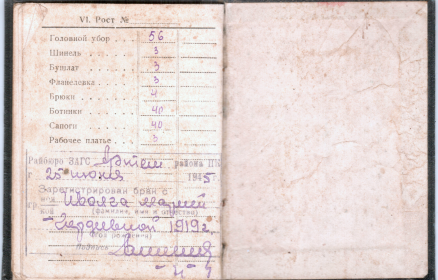 VI. Рост №
Головной убор 56
Шинель 3
Бушлат 3
Фланелевка 3
Брюки 4
Ботинки 40
Сапоги 40
Рабочее платье 3
Райбюро ЗАГС Артем района ПК
25 июня 1945
Зарегистрирован брак с
гр. Иволга Марией
(фамилия, имя и отчество)
1919 г.
Подпись